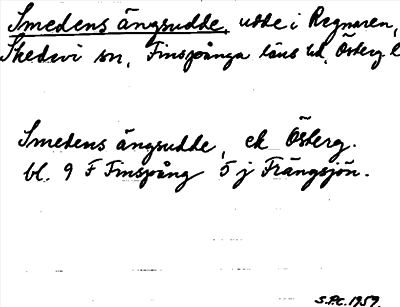 Smedens ängsudde, udde i Regnaren,
Skedevi sn, Finspånga läns hd, Österg l
Smedens ängsudde, ek Österg.
bl. 9 F Finspång 5 j Frängsjön.
S.P.C. 1959.